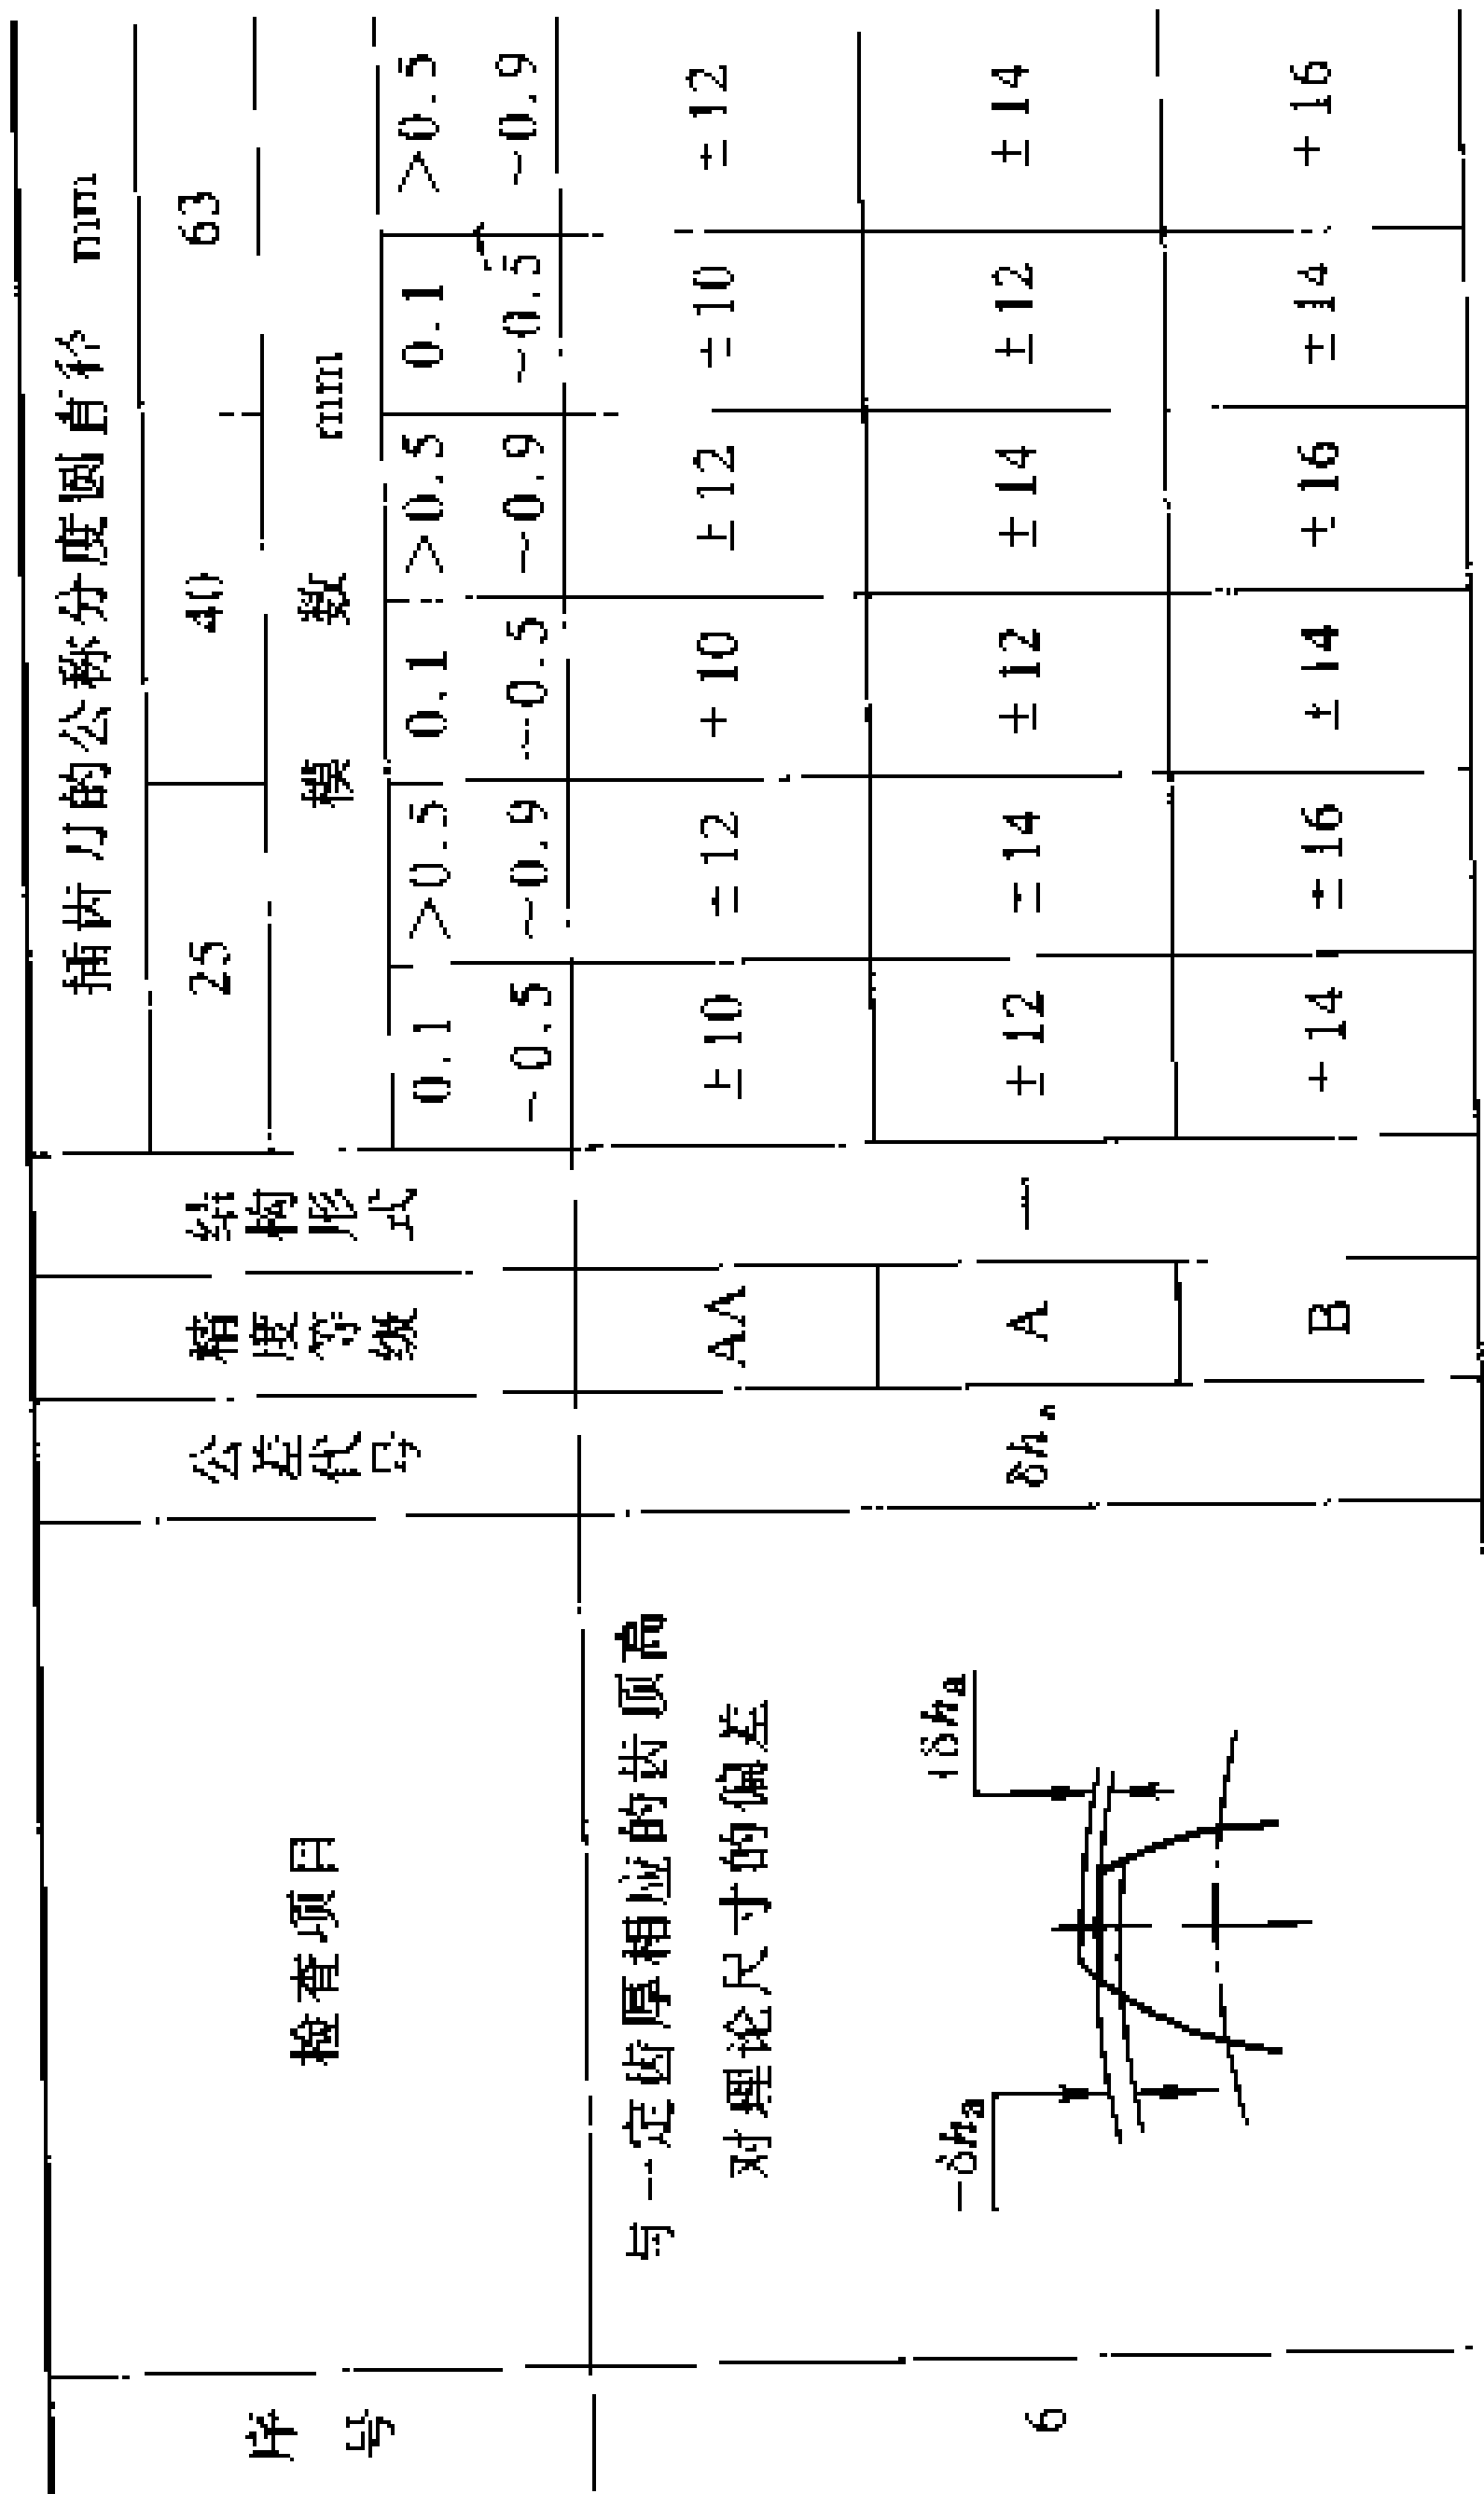 序号 检查项目 公差代号 精度等级 结构形式 插齿刀的公称分度圆直径 mm
25 40 63
模 数 mm
0.1 >0.5 0.1 >0.5 0.1 >0.5
~0.5 ~0.9 ~0.5 ~0.9 ~0.5 ~0.9
6 与一定齿厚相应的齿顶高
对理论尺寸的偏差
−δhₐ +δhₐ
δhₐ
AA — ±10 ±12 +10 ±12 ±10 ±12
A ±12 ±14 ±12 ±14 ±12 ±14
B +14 ±16 ±14 +16 ±14 +16